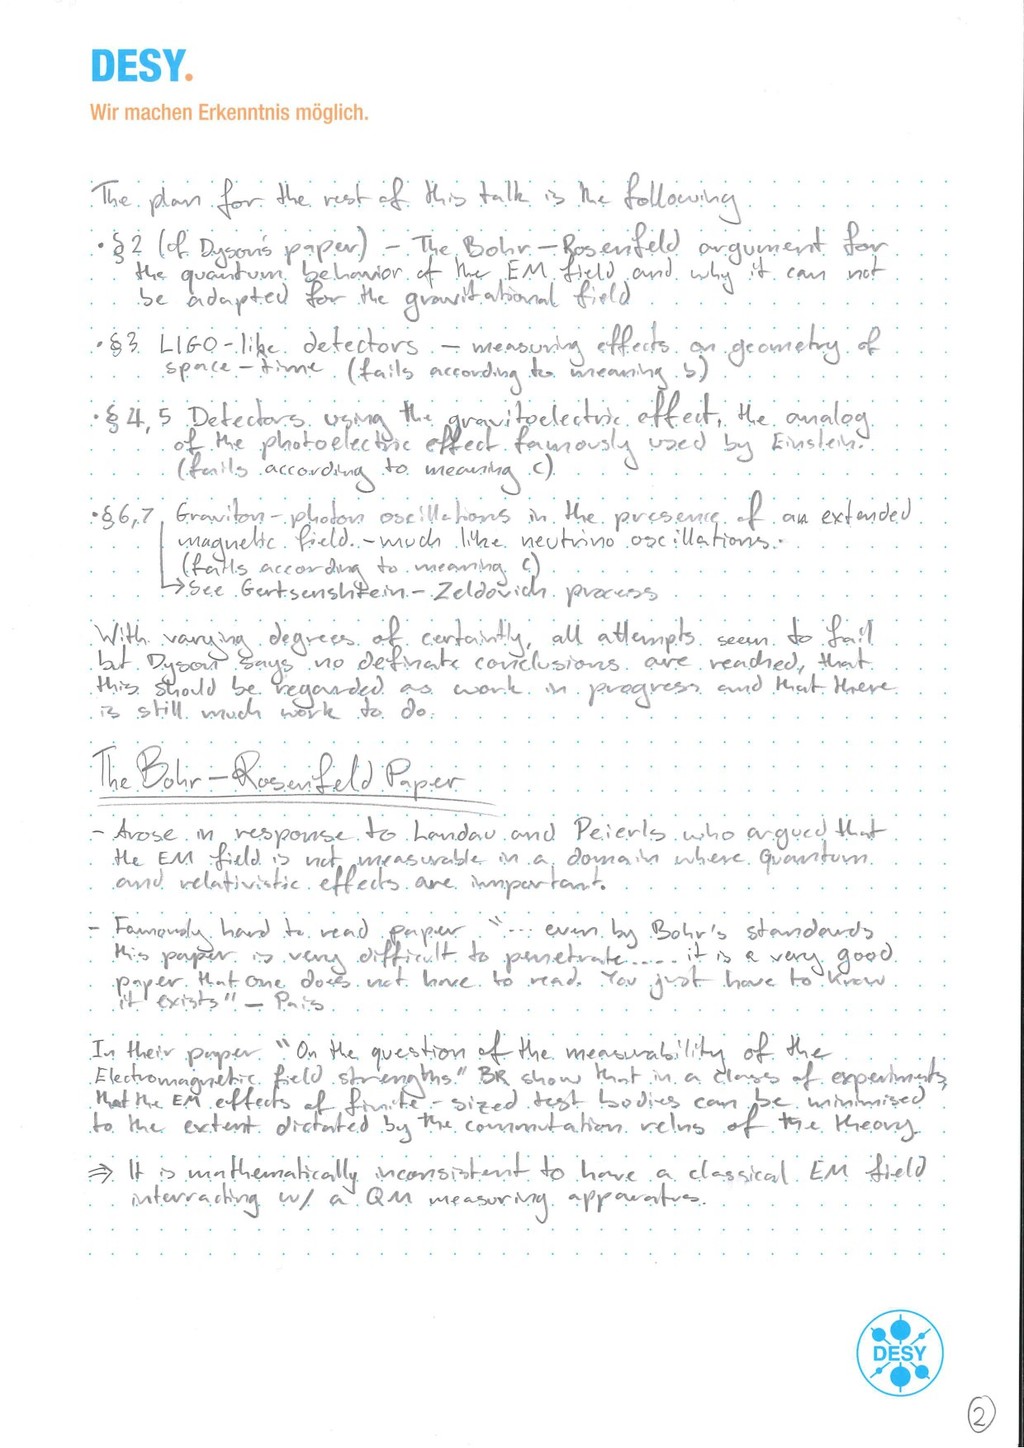 DESY.
Wir machen Erkenntnis möglich.
The plan for the rest of this talk is the following
• §2 (of Dyson's paper) – The Bohr–Rosenfeld argument for
the quantum behavior of the EM field and why it can not
be adapted for the gravitational field
• §3 LIGO-like detectors – measuring effects on geometry of
space-time (fails according to meaning b)
• §4,5 Detectors using the gravitoelectric effect, the analog
of the photoelectric effect famously used by Einstein.
(fails according to meaning c)
• §6,7 Graviton-photon oscillations in the presence of an extended
magnetic field. – much like neutrino oscillations.
(fails according to meaning c)
↳ See Gertsenshtein–Zeldovich process
With varying degrees of certaintly, all attempts seem to fail
but Dyson says no definate conclusions are reached, that
this should be regarded as work in progress and that there
is still much work to do.
The Bohr–Rosenfeld Paper
– Arose in response to Landau and Peierls who argued that
the EM field is not measurable in a domain where Quantum
and relativistic effects are important.
– Famously hard to read paper "... even by Bohr's standards
this paper is very difficult to penetrate..... it is a very good
paper that one does not have to read. You just have to know
it exists" – Pais
In their paper "On the question of the measurability of the
Electromagnetic field strengths" BR show that in a class of experiments,
that the EM effects of finite-sized test bodies can be minimised
to the extent dictated by the commutation relns of the theory
⇒ It is mathematically inconsistent to have a classical EM field
interracting w/ a QM measuring apparatus.
DESY
2